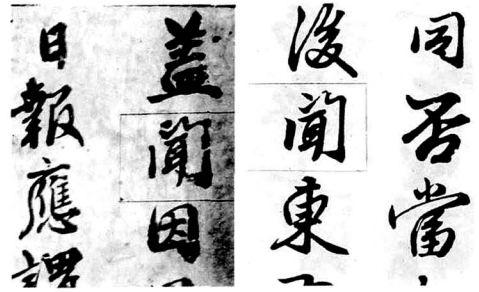 同否當
後聞東
盖聞因
日報應